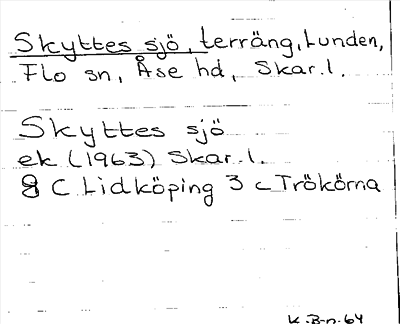 Skyttes sjö, terräng, Lunden,
Flo sn, Åse hd, Skar.l.
Skyttes sjö
ek (1963) Skar.l.
8 C Lidköping 3 c Trökörna
K.B-n.64